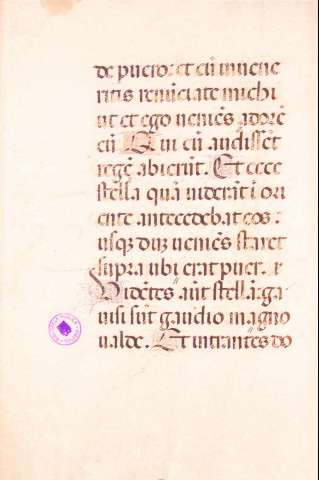 de puero: et cū invene
ritis renūciate michi
ut et ego veniēs adorē
eū Qui cū audissēt
regē abierūt. Et ecce
stella quā viderāt ī ori
ente antecedebat eos:
usq; dū veniēs staret
supra ubi erat puer.
Vidētes aūt stellā: ga
visi sūt gaudio magno
valde. Et intrantes do